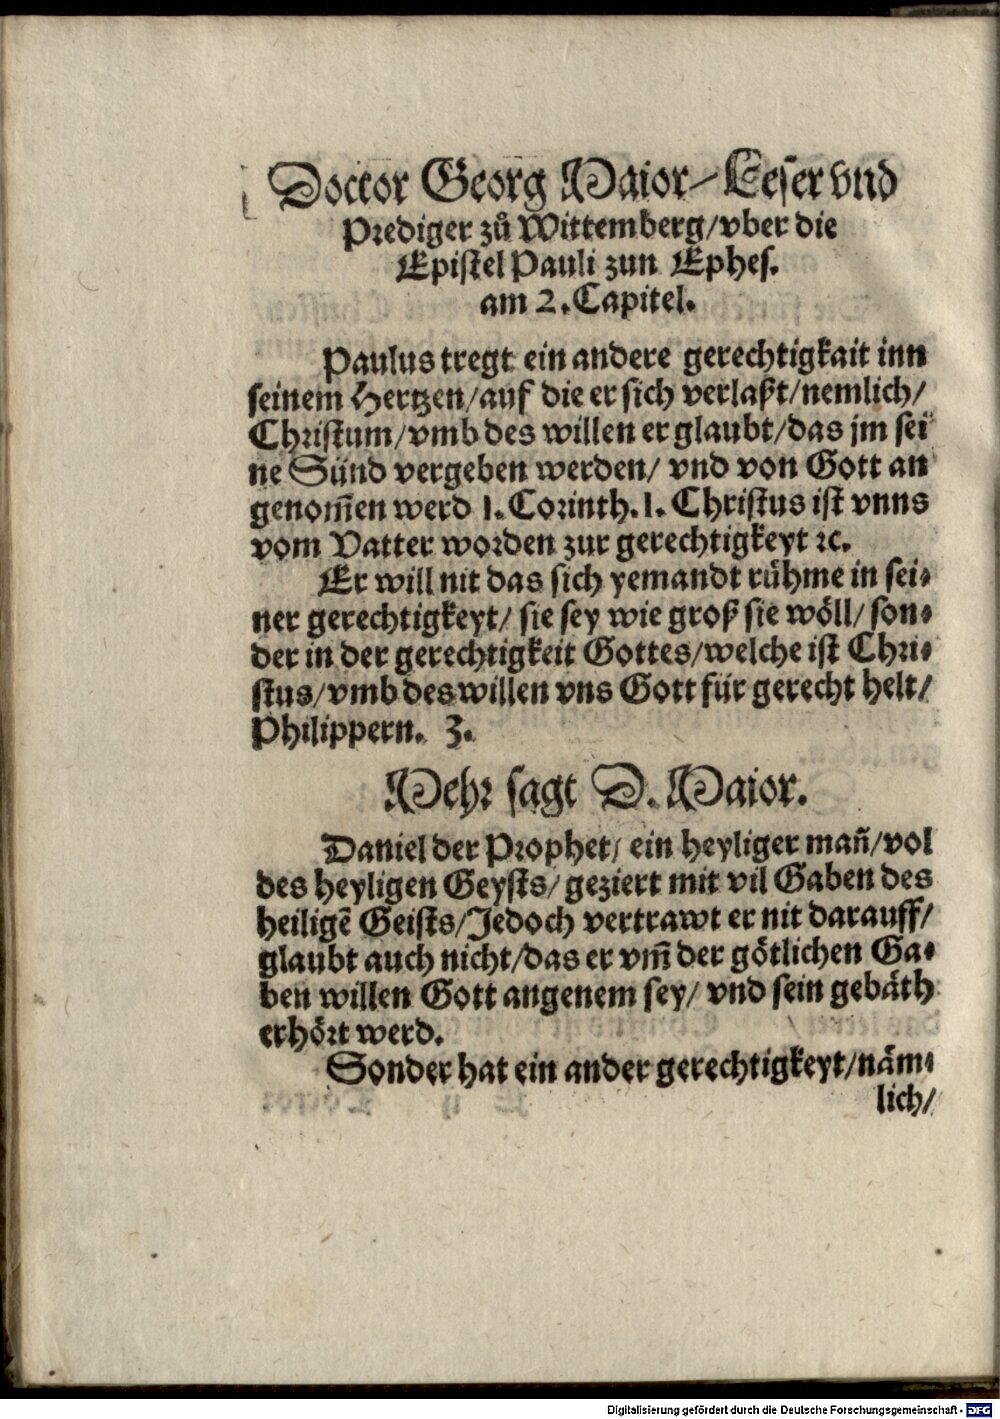 Doctor Georg Maior/ Leser vnd
Prediger zů Wittemberg/vber die
Epistel Pauli zun Ephes.
am 2. Capitel.
Paulus tregt ein andere gerechtigkait inn
seinem Hertzen/auf die er sich verlaßt/nemlich/
Christum/vmb des willen er glaubt/das jm sei
ne Sünd vergeben werden/ vnd von Gott an
genom̃en werd 1. Corinth. 1. Christus ist vnns
vom Vatter worden zur gerechtigkeyt ꝛc.
Er will nit das sich yemandt rühme in sei⸗
ner gerechtigkeyt/ sie sey wie groß sie wöll/ son⸗
der in der gerechtigkeit Gottes/welche ist Chri⸗
stus/vmb des willen vns Gott für gerecht helt/
Philippern. 3.
Mehr sagt D. Maior.
Daniel der Prophet/ ein heyliger mañ/vol
des heyligen Geysts/ geziert mit vil Gaben des
heiligẽ Geists/Jedoch vertrawt er nit darauff/
glaubt auch nicht/das er vm̃ der götlichen Ga⸗
ben willen Gott angenem sey/ vnd sein gebäth
erhört werd.
Sonder hat ein ander gerechtigkeyt/näm⸗
lich/
Digitalisierung gefördert durch die Deutsche Forschungsgemeinschaft - DFG